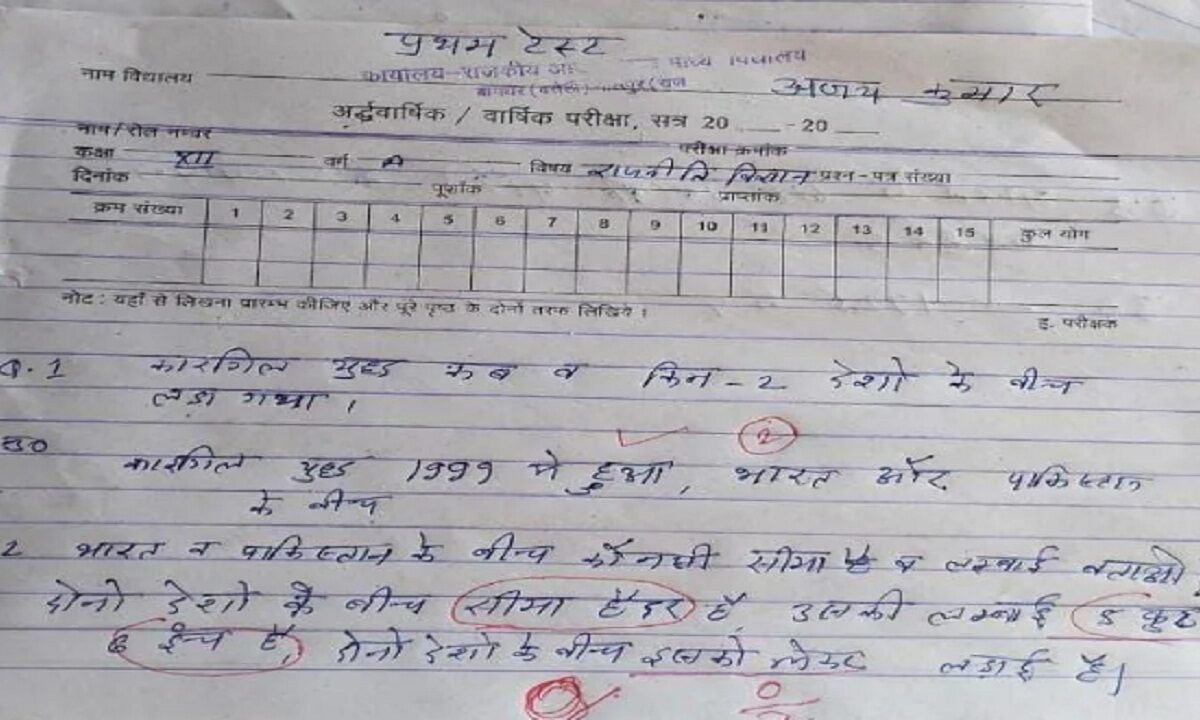 प्रथम टेस्ट
नाम विद्यालय
कार्यालय-राजकीय
अजय कुमार
अर्द्धवार्षिक / वार्षिक परीक्षा, सत्र 20 ___ - 20 ___
नाम/रोल नम्बर परीक्षा क्रमांक
कक्षा XII वर्ग A विषय राजनीति विज्ञान प्रश्न-पत्र संख्या
दिनांक पूर्णांक प्राप्तांक
क्रम संख्या 1 2 3 4 5 6 7 8 9 10 11 12 13 14 15 कुल योग
नोट : यहाँ से लिखना प्रारम्भ कीजिए और पूरे पृष्ठ के दोनों तरफ लिखिये ।
ह. परीक्षक
Q.1 कारगिल युद्ध कब व किन-2 देशो के बीच
लड़ा गया ।
2
उ0 कारगिल युद्ध 1999 मे हुआ, भारत और पाकिस्तान
के बीच
2 भारत व पाकिस्तान के बीच कौनसी सीमा है व लम्बाई बताओ
दोनो देशो के बीच सीमा हैदर है, उसकी लम्बाई 5 फुट
6 इंच है, दोनो देशो के बीच इसको लेकर लड़ाई है।
0